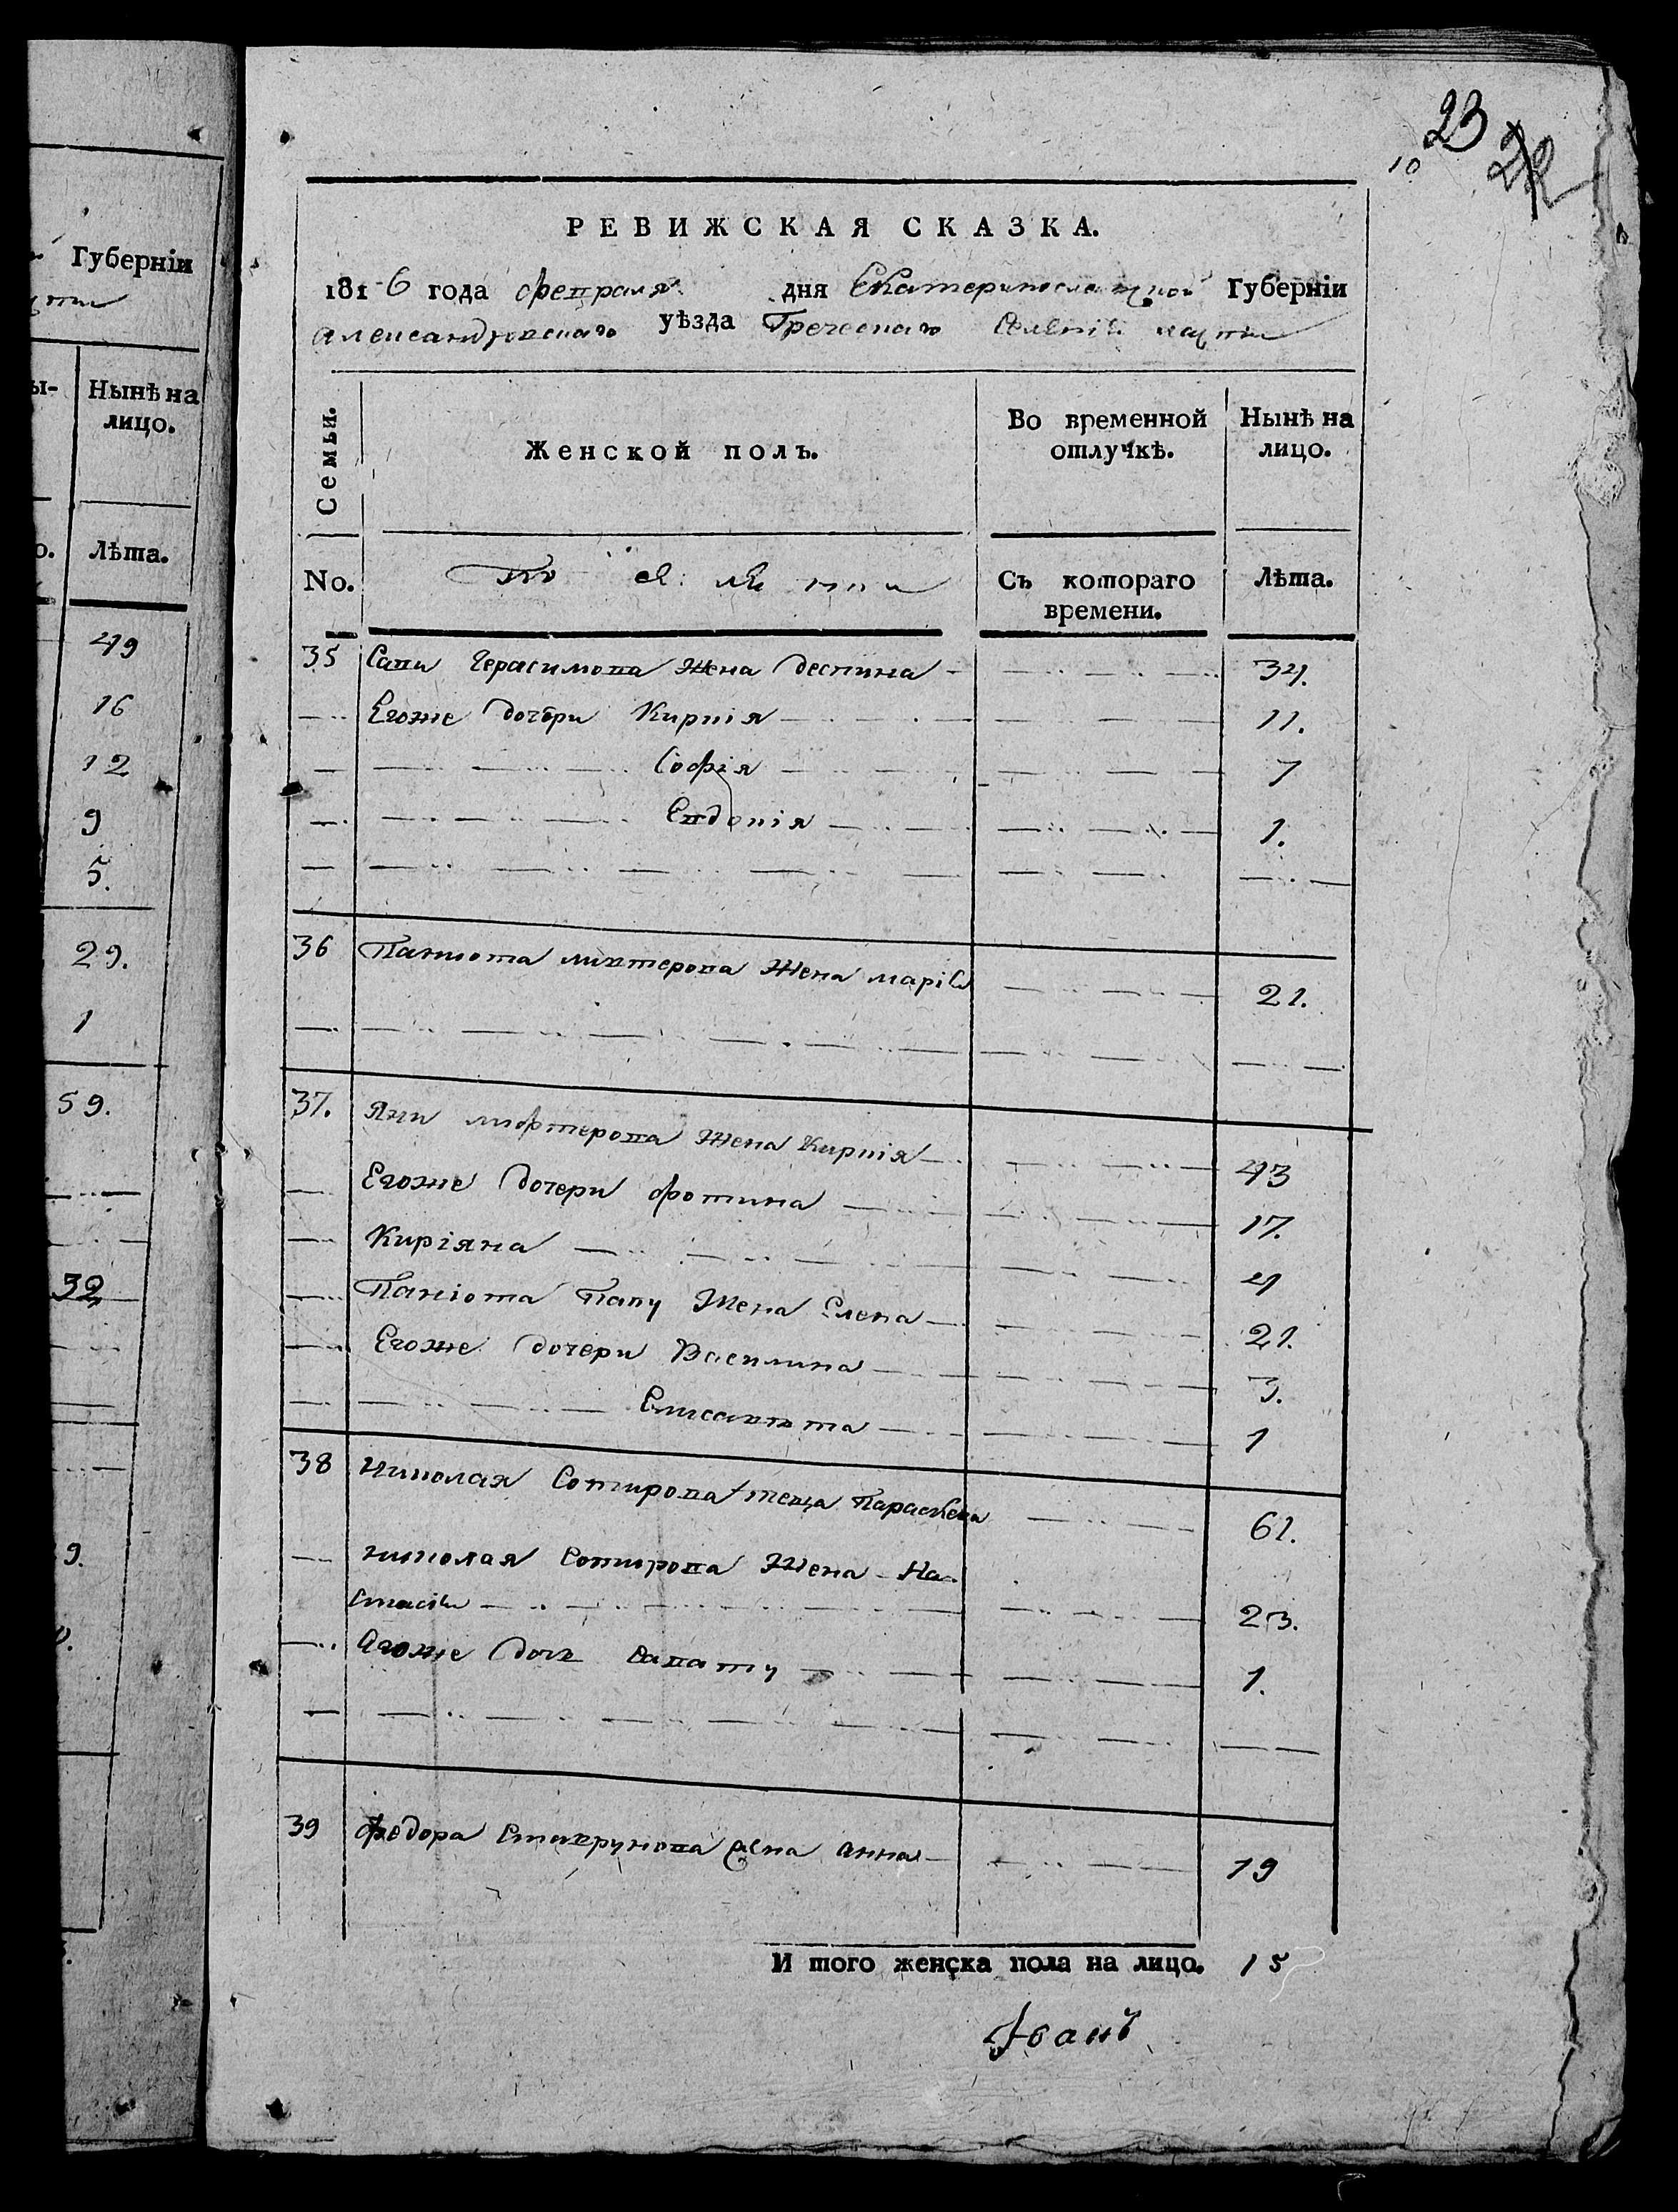 Губерніи
Нынѣ на
лицо.
Лѣта.
49
16
12
9
5.
29.
1
59.
32
9.
23
10
22
РЕВИЖСКАЯ СКАЗКА.
1816 года февраля дня Екатеринославской Губерніи
Александровскаго уѣзда Греческаго Селенія
Семьи.
Женской полъ.
Во временной
отлучкѣ.
Нынѣ на
лицо.
No.
Съ котораго
времени.
Лѣта.
35 Сави Герасимова Жена деспина 34.
Егоже дочери Кирпія 11.
Софія 7
Евдокія 1.
36 Паниота Жена марія 21.
37. Яни Жена Кирпія 43
Егоже дочери фотина 17.
Киріяна 4
Паніота Папу Жена Елена 21.
Егоже дочери Василина 3.
Елисавета 1
38 Николая Сотирова теща Параскева 61.
николая Сотирова Жена На
стасія 23.
Егоже дочь 1.
39 федора Ставрунова жена анна 19
И того женска пола на лицо. 15
Іванъ